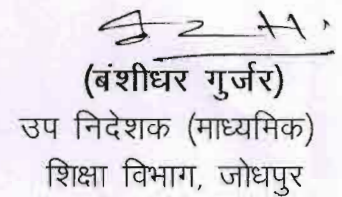 (बंशीधर गुर्जर)
उप निदेशक (माध्यमिक)
शिक्षा विभाग, जोधपुर